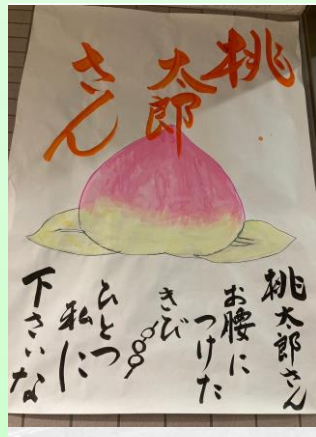 桃
太郎
さん
桃太郎さん
お腰に
つけた
きび
ひとつ
私に
下さいな